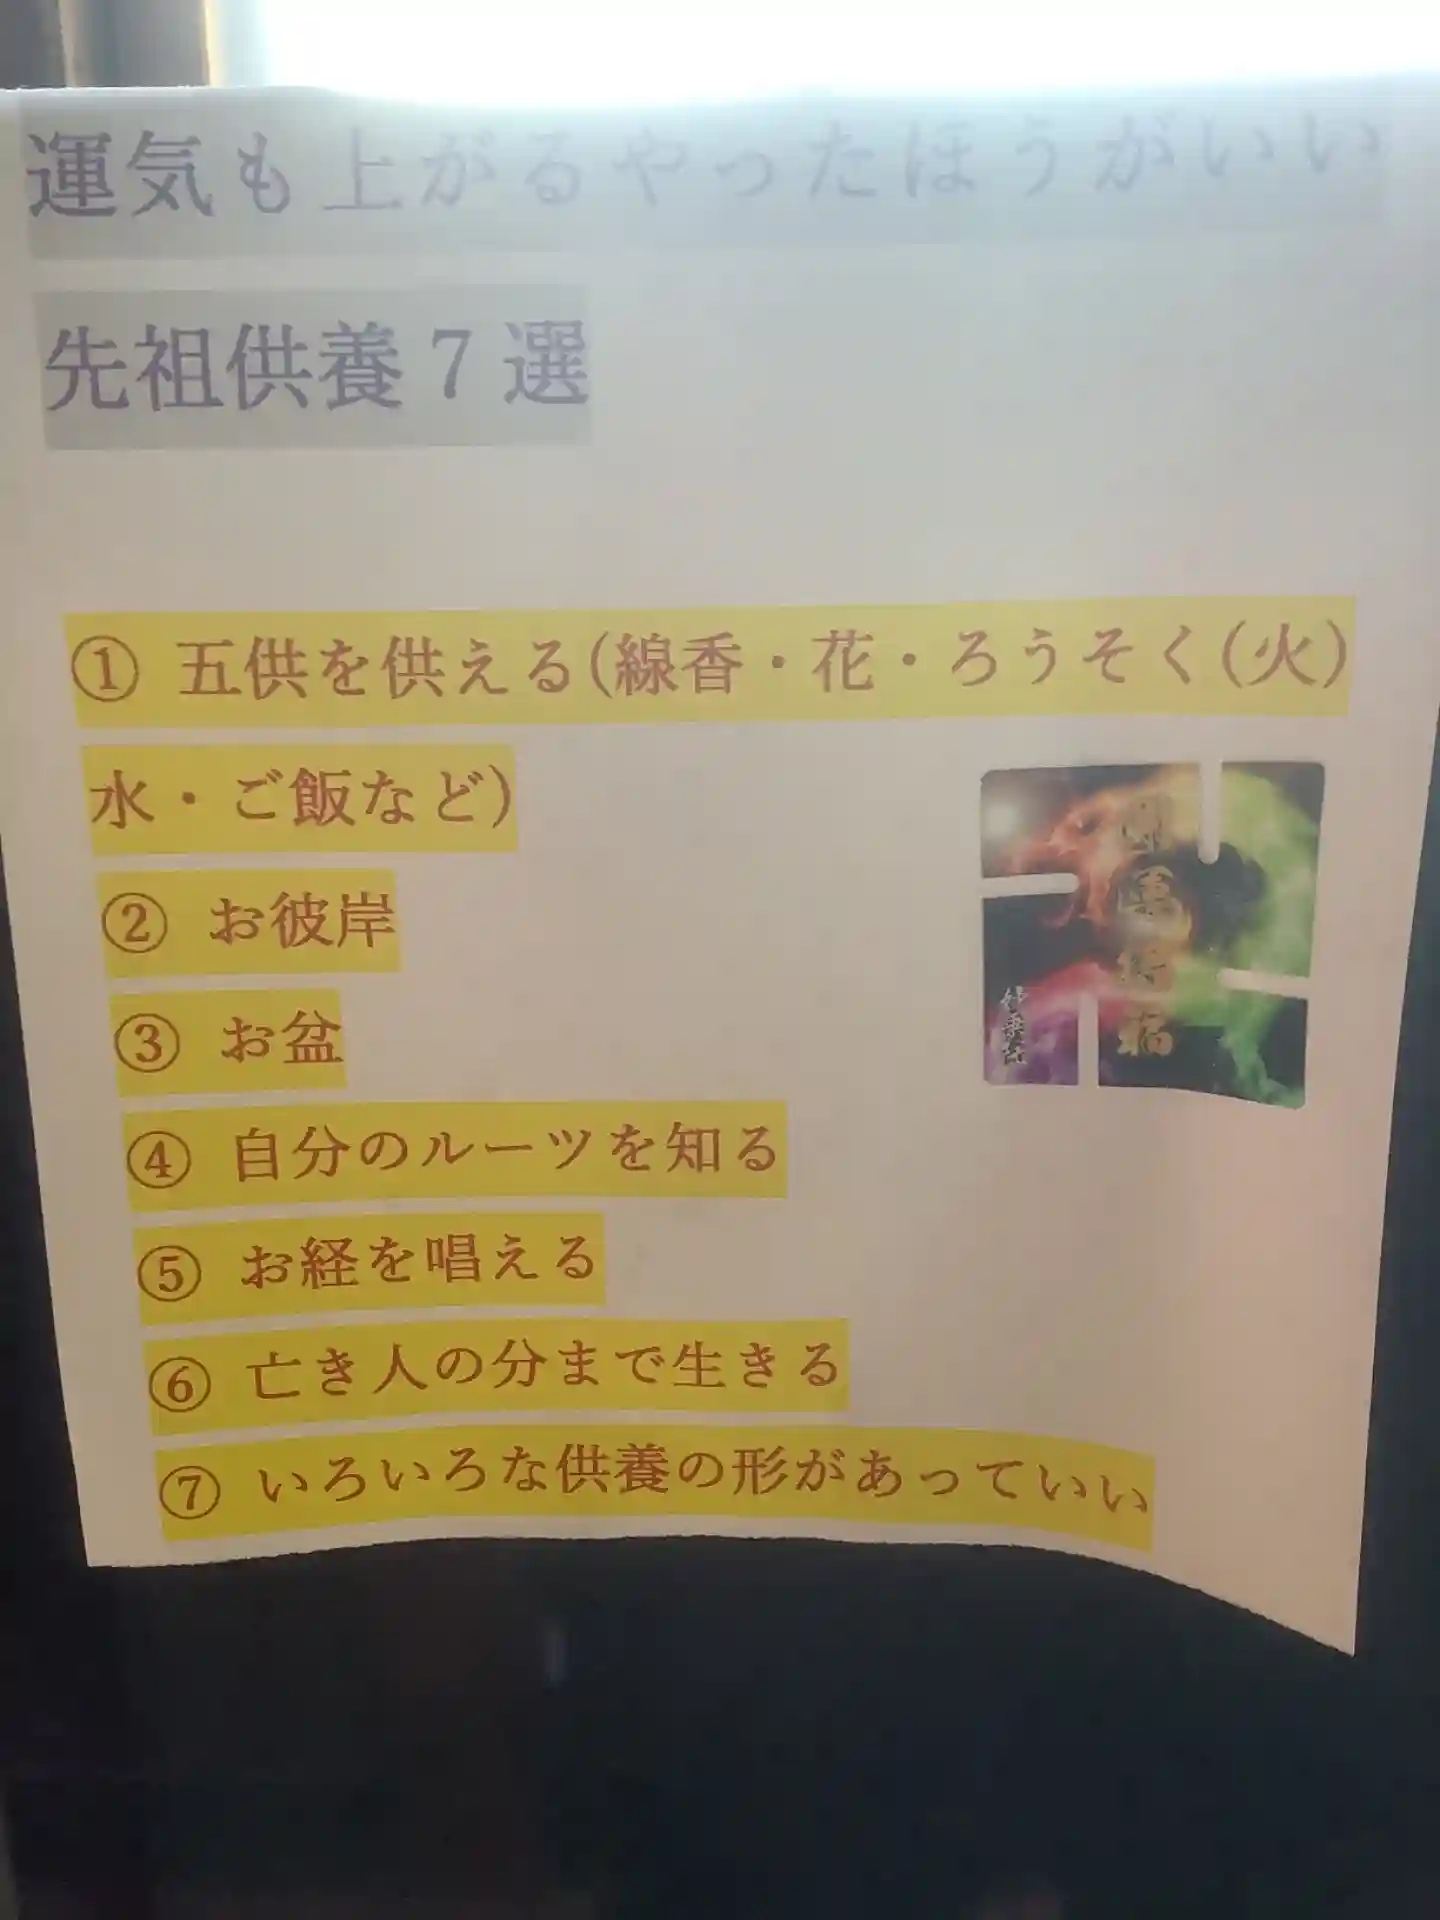 運気も上がるやったほうがいい
先祖供養７選
① 五供を供える(線香・花・ろうそく(火)
水・ご飯など)
② お彼岸
③ お盆
④ 自分のルーツを知る
⑤ お経を唱える
⑥ 亡き人の分まで生きる
⑦ いろいろな供養の形があっていい